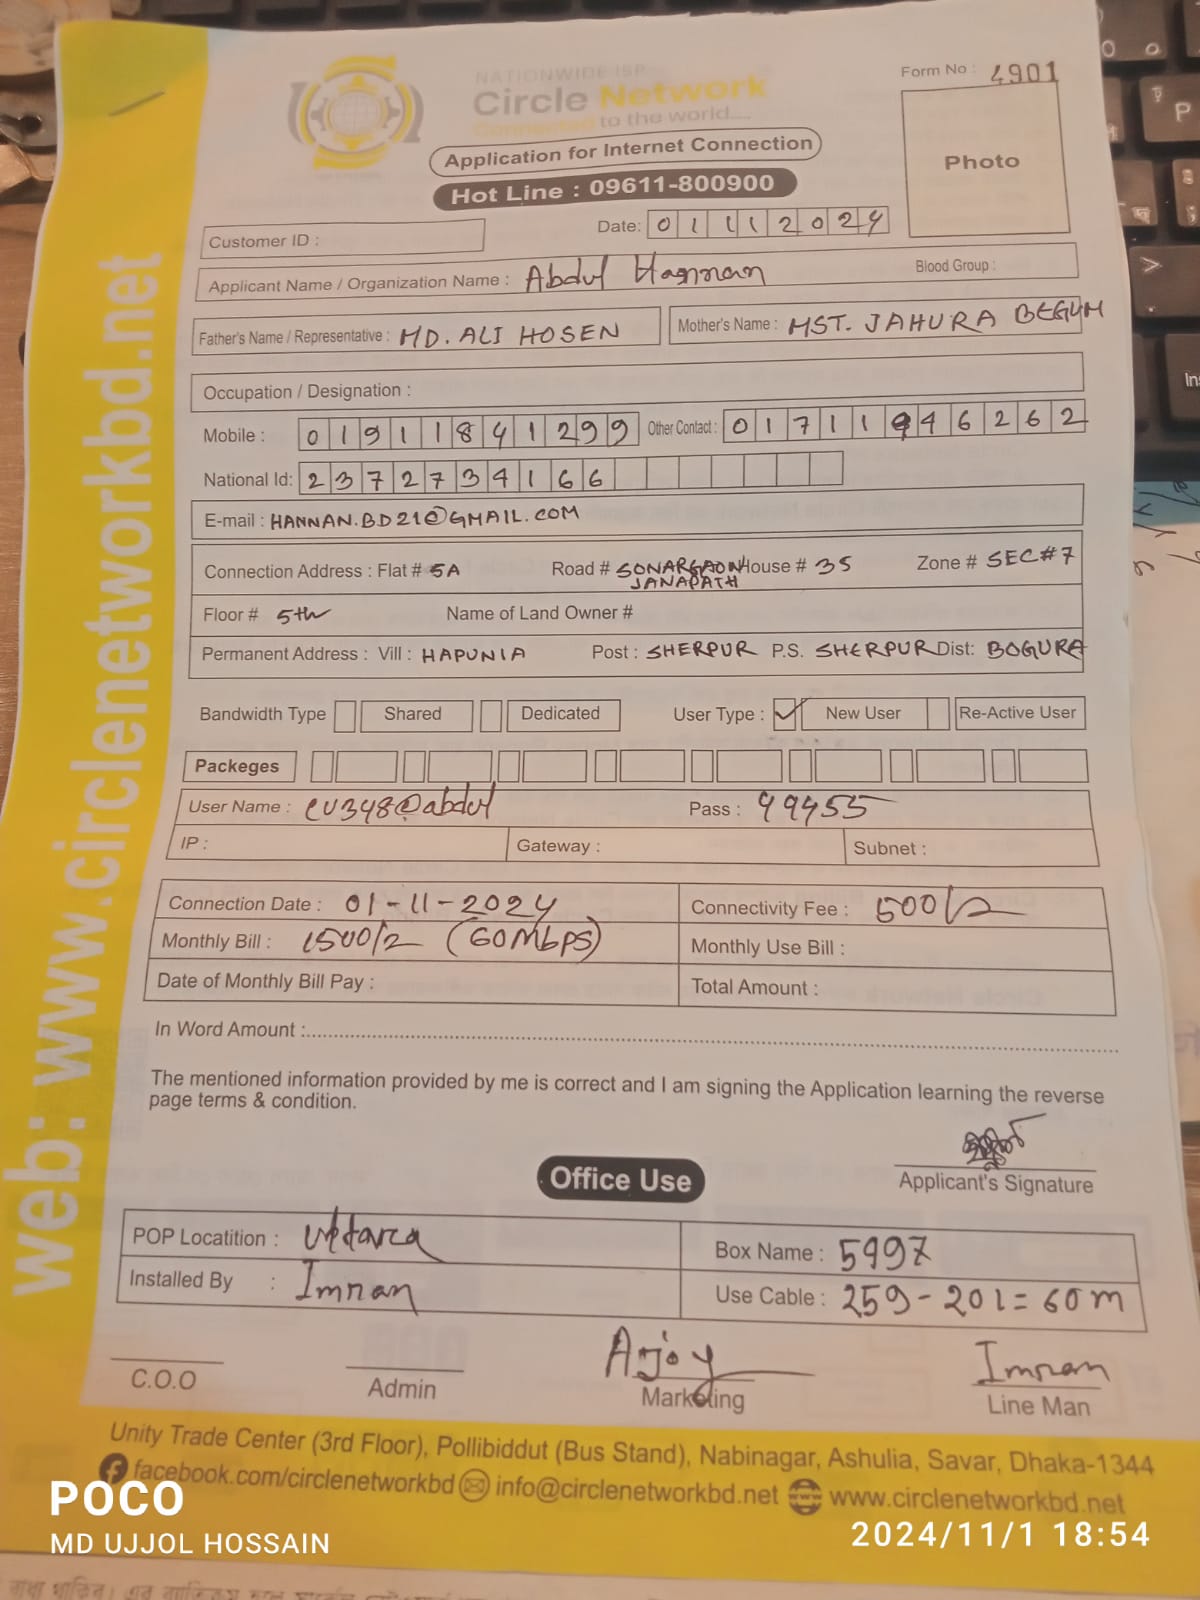 Form No : 4901
NATIONWIDE ISP
Circle Network
Connected to the world....
Application for Internet Connection
Hot Line : 09611-800900
Photo
Customer ID :
Date: 01 11 2024
Applicant Name / Organization Name : Abdul Hannan Blood Group :
Father's Name / Representative : MD. ALI HOSEN Mother's Name : MST. JAHURA BEGUM
Occupation / Designation :
Mobile : 01911841299 Other Contact : 01711946262
National Id: 2372734166
E-mail : HANNAN.BD21@GMAIL.COM
Connection Address : Flat # 5A Road # SONARGAON JANAPATH House # 35 Zone # SEC#7
Floor # 5th Name of Land Owner #
Permanent Address : Vill : HAPUNIA Post : SHERPUR P.S. SHERPUR Dist: BOGURA
Bandwidth Type Shared Dedicated User Type : ✓ New User Re-Active User
Packeges
User Name : CU348@abdul Pass : 99455
IP : Gateway : Subnet :
Connection Date : 01-11-2024 Connectivity Fee : 500/=
Monthly Bill : 1500/= (60Mbps) Monthly Use Bill :
Date of Monthly Bill Pay : Total Amount :
In Word Amount :
The mentioned information provided by me is correct and I am signing the Application learning the reverse
page terms & condition.
Applicant's Signature
Office Use
POP Locatition : Uttara Box Name : 5997
Installed By : Imran Use Cable : 259 - 201 = 60m
Arjoy Imran
C.O.O Admin Marketing Line Man
Unity Trade Center (3rd Floor), Pollibiddut (Bus Stand), Nabinagar, Ashulia, Savar, Dhaka-1344
facebook.com/circlenetworkbd info@circlenetworkbd.net www.circlenetworkbd.net
web: www.circlenetworkbd.net
POCO
MD UJJOL HOSSAIN
2024/11/1 18:54